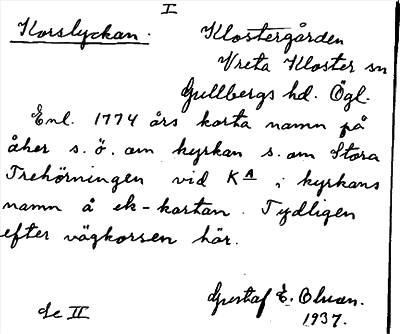 I
Korslyckan. Klostergården
Vreta Kloster sn
Gullbergs hd. Ögl.
Enl. 1774 års karta namn på
åker s. ö. om kyrkan s. om Stora
Trehörningen vid KA i kyrkans
namn å ek-kartan. Tydligen
efter vägkorsen här.
Gustaf E. Olsson.
1937.
se II